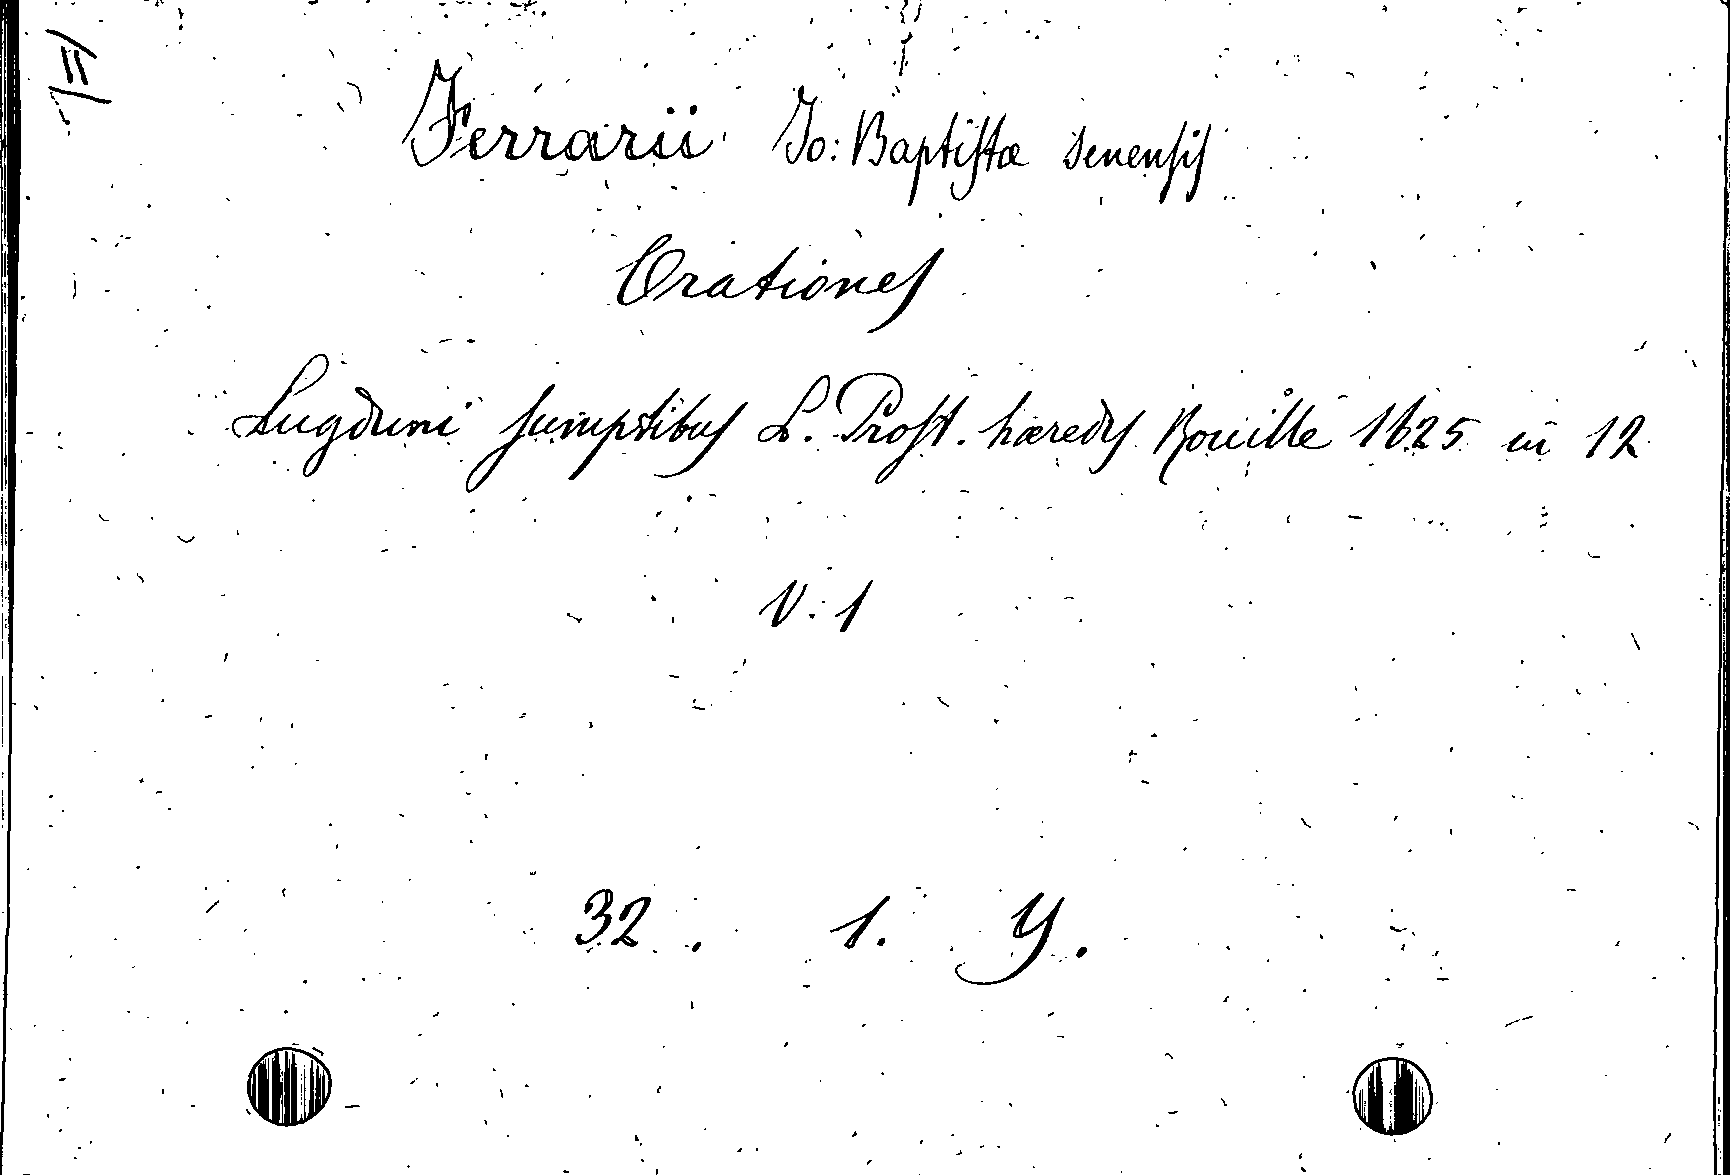 Ferrarii Jo: Baptistæ Senensis
Orationes
Lugduni sumptibus L. Prost. hæreds Rouille 1625 in 12
V. 1
32. 1. Y.